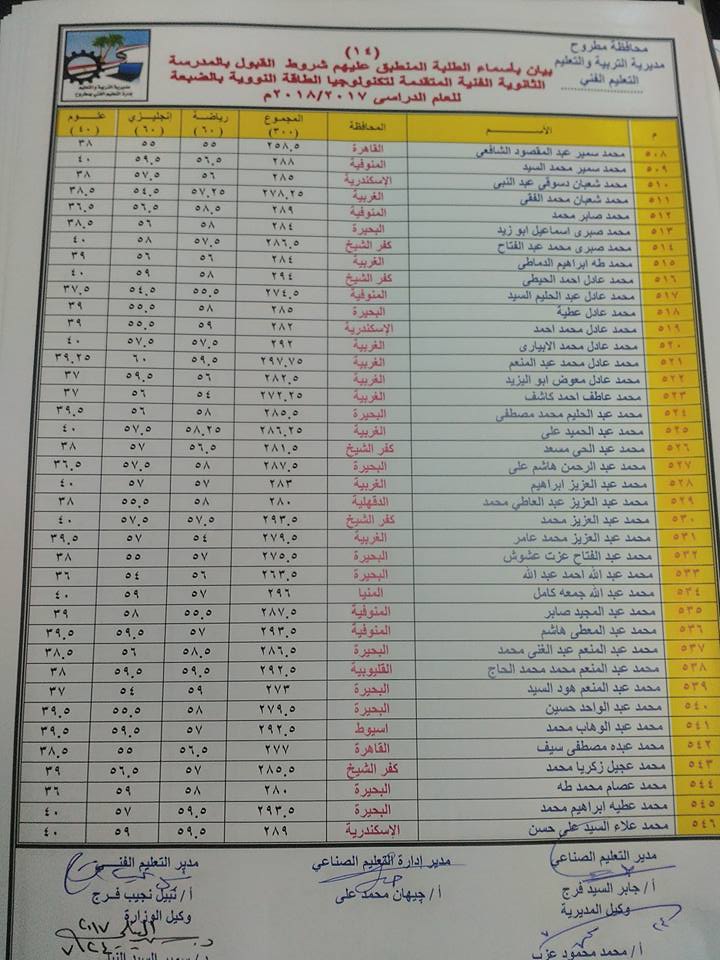 محافظة مطروح
مديرية التربية والتعليم
التعليم الفني
(١٤)
بيان بأسماء الطلبة المنطبق عليهم شروط القبول بالمدرسة
الثانوية الفنية المتقدمة لتكنولوجيا الطاقة النووية بالضبعة
للعام الدراسى ٢٠١٨/٢٠١٧م
مديرية التربية والتعليم
إدارة التعليم الفني بمطروح
م الأســـم المحافظة المجموع (٣٠٠) رياضة (٦٠) إنجليزي (٦٠) علـــوم (٤٠)
٥٠٨ محمد سمير عبد المقصود الشافعي القاهرة ٢٥٨,٥ ٥٥ ٥٥ ٣٨
٥٠٩ محمد سمير محمد السيد المنوفية ٢٨٨ ٥٦,٥ ٥٩,٥ ٤٠
٥١٠ محمد شعبان دسوقى عبد النبى الإسكندرية ٢٨٥ ٥٦ ٥٧,٥ ٣٨
٥١١ محمد شعبان محمد الفقى الغربية ٢٧٨,٢٥ ٥٧,٢٥ ٥٤,٥ ٣٨,٥
٥١٢ محمد صابر محمد المنوفية ٢٨٩ ٥٨,٥ ٥٦,٥ ٣٦,٥
٥١٣ محمد صبرى اسماعيل ابو زيد البحيرة ٢٨٤ ٥٨ ٥٦ ٣٨,٥
٥١٤ محمد صبرى محمد عبد الفتاح كفر الشيخ ٢٨٦,٥ ٥٧,٥ ٥٨ ٤٠
٥١٥ محمد طه ابراهيم الدماطى الغربية ٢٨٤ ٥٦ ٥٦ ٣٩
٥١٦ محمد عادل احمد الحيطى كفر الشيخ ٢٩٤ ٥٨ ٥٩ ٤٠
٥١٧ محمد عادل عبد الحليم السيد المنوفية ٢٧٤,٥ ٥٥,٥ ٥٤,٥ ٣٧,٥
٥١٨ محمد عادل عطية البحيرة ٢٨٥ ٥٨ ٥٥,٥ ٣٩
٥١٩ محمد عادل محمد احمد الإسكندرية ٢٨٢ ٥٩ ٥٥,٥ ٣٩
٥٢٠ محمد عادل محمد الابيارى الغربية ٢٩٢ ٥٧,٥ ٥٧,٥ ٤٠
٥٢١ محمد عادل محمد عبد المنعم الغربية ٢٩٧,٧٥ ٥٩,٥ ٦٠ ٣٩,٢٥
٥٢٢ محمد عادل معوض ابو اليزيد الغربية ٢٨٢,٥ ٥٦ ٥٩,٥ ٣٧
٥٢٣ محمد عاطف احمد كاشف الغربية ٢٧٢,٢٥ ٥٤ ٥٦ ٣٧
٥٢٤ محمد عبد الحليم محمد مصطفى البحيرة ٢٨٥,٥ ٥٨ ٥٦ ٣٩,٥
٥٢٥ محمد عبد الحميد على الغربية ٢٨٦,٢٥ ٥٨,٢٥ ٥٧,٥ ٤٠
٥٢٦ محمد عبد الحى مسعد كفر الشيخ ٢٨١,٥ ٥٦,٥ ٥٧ ٣٨
٥٢٧ محمد عبد الرحمن هاشم على البحيرة ٢٨٧,٥ ٥٨ ٥٧,٥ ٣٦,٥
٥٢٨ محمد عبد العزيز ابراهيم الغربية ٢٨٣ ٥٧ ٥٧ ٤٠
٥٢٩ محمد عبد العزيز عبد العاطي محمد الدقهلية ٢٨٠ ٥٨ ٥٥,٥ ٣٨
٥٣٠ محمد عبد العزيز محمد كفر الشيخ ٢٩٣,٥ ٥٧,٥ ٥٧,٥ ٤٠
٥٣١ محمد عبد العزيز محمد عامر الغربية ٢٧٩,٥ ٥٤ ٥٧ ٣٩,٥
٥٣٢ محمد عبد الفتاح عزت عشوش البحيرة ٢٧٥,٥ ٥٧ ٥٥ ٣٨
٥٣٣ محمد عبد الله احمد عبد الله البحيرة ٢٦٣,٥ ٥٦ ٥٤ ٣٦
٥٣٤ محمد عبد الله جمعه كامل المنيا ٢٩٦ ٥٧ ٥٩ ٤٠
٥٣٥ محمد عبد المجيد صابر المنوفية ٢٨٧,٥ ٥٥,٥ ٥٨ ٣٩
٥٣٦ محمد عبد المعطى هاشم المنوفية ٢٩٣,٥ ٥٧ ٥٩,٥ ٣٩,٥
٥٣٧ محمد عبد المنعم عبد الغنى محمد البحيرة ٢٨٦,٥ ٥٨,٥ ٥٦ ٣٨,٥
٥٣٨ محمد عبد المنعم محمد محمد الحاج القليوبية ٢٩٢,٥ ٥٩,٥ ٥٩,٥ ٣٨
٥٣٩ محمد عبد المنعم هود السيد البحيرة ٢٧٣ ٥٩ ٥٤ ٣٧
٥٤٠ محمد عبد الواحد حسين البحيرة ٢٧٩,٥ ٥٨ ٥٥,٥ ٣٩,٥
٥٤١ محمد عبد الوهاب محمد اسيوط ٢٩٢,٥ ٥٧ ٥٩,٥ ٣٩,٥
٥٤٢ محمد عبده مصطفى سيف القاهرة ٢٧٧ ٥٦,٥ ٥٥ ٣٨,٥
٥٤٣ محمد عجيل زكريا محمد كفر الشيخ ٢٨٥,٥ ٥٧ ٥٦,٥ ٣٩
٥٤٤ محمد عصام محمد طه البحيرة ٢٨٠ ٥٨ ٥٩ ٣٦
٥٤٥ محمد عطيه ابراهيم محمد البحيرة ٢٩٣,٥ ٥٩,٥ ٥٧ ٤٠
٥٤٦ محمد علاء السيد على حسن الإسكندرية ٢٨٩ ٥٩,٥ ٥٩ ٤٠
مدير التعليم الصناعي مدير إدارة التعليم الصناعي مدير التعليم الفنى
أ/ جابر السيد فرج أ/ جيهان محمد على أ/ نبيل نجيب فرج
وكيل المديرية وكيل الوزارة
أ/ محمد محمود عزب